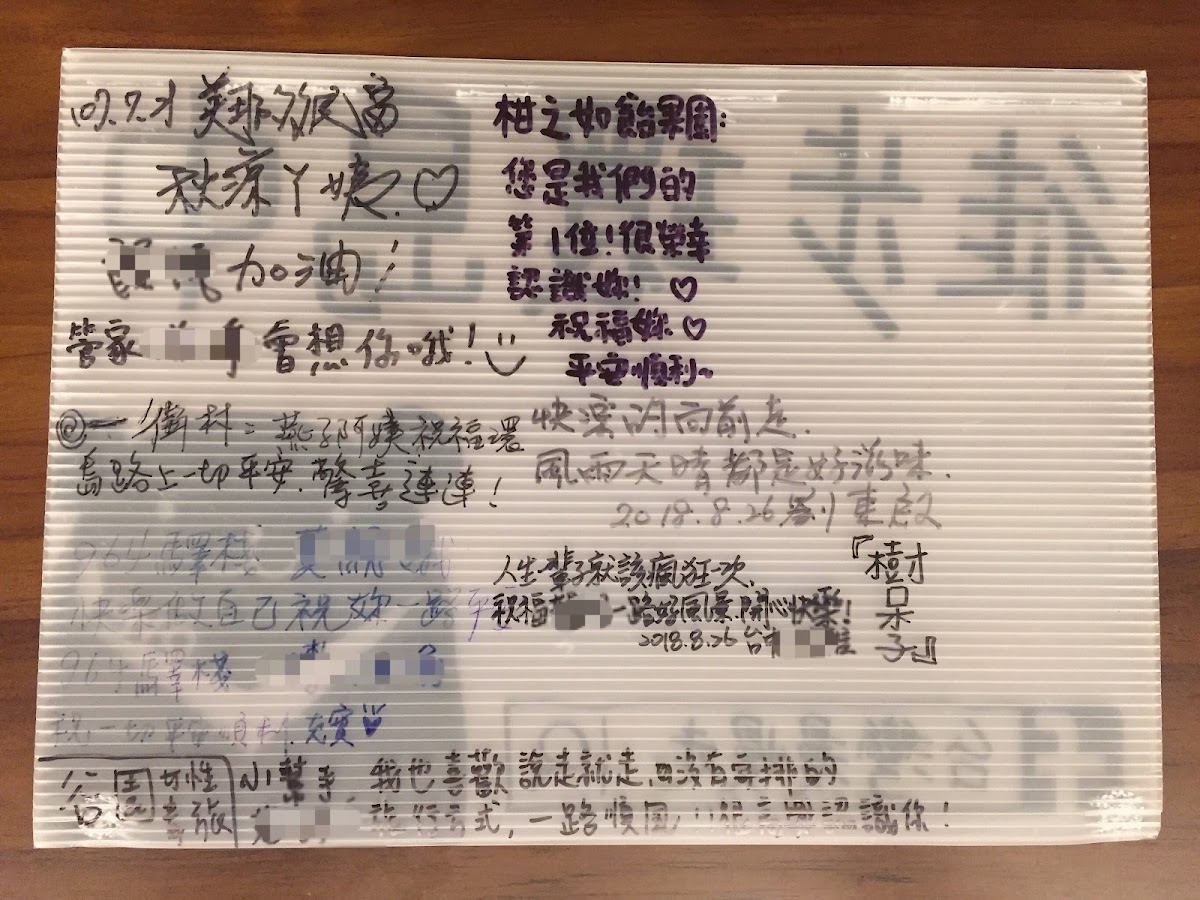 107.7.才 美那多民宿
秋涼丫姨.♡
加油!
管家 會想你哦!
@一街村:燕子阿姨祝福環
島路上一切平安.驚喜連連!
964驛棧
快樂做自己祝妳一路平
964驛棧
祝一切平安順利充實
小幫手.我也喜歡說走就走,沒有安排的
旅行方式,一路順風!很高興認識你!
柑之如飴果園:
您是我們的
第1位!很榮幸
認識妳!♡
祝福妳♡
平安順利~
快樂的向前走.
風雨天晴都是好滋味.
2018.8.26 劉東啟
人生一輩子就該瘋狂一次,
祝福 一路好風景.開心快樂!
2018.8.26 台中
『樹呆子』